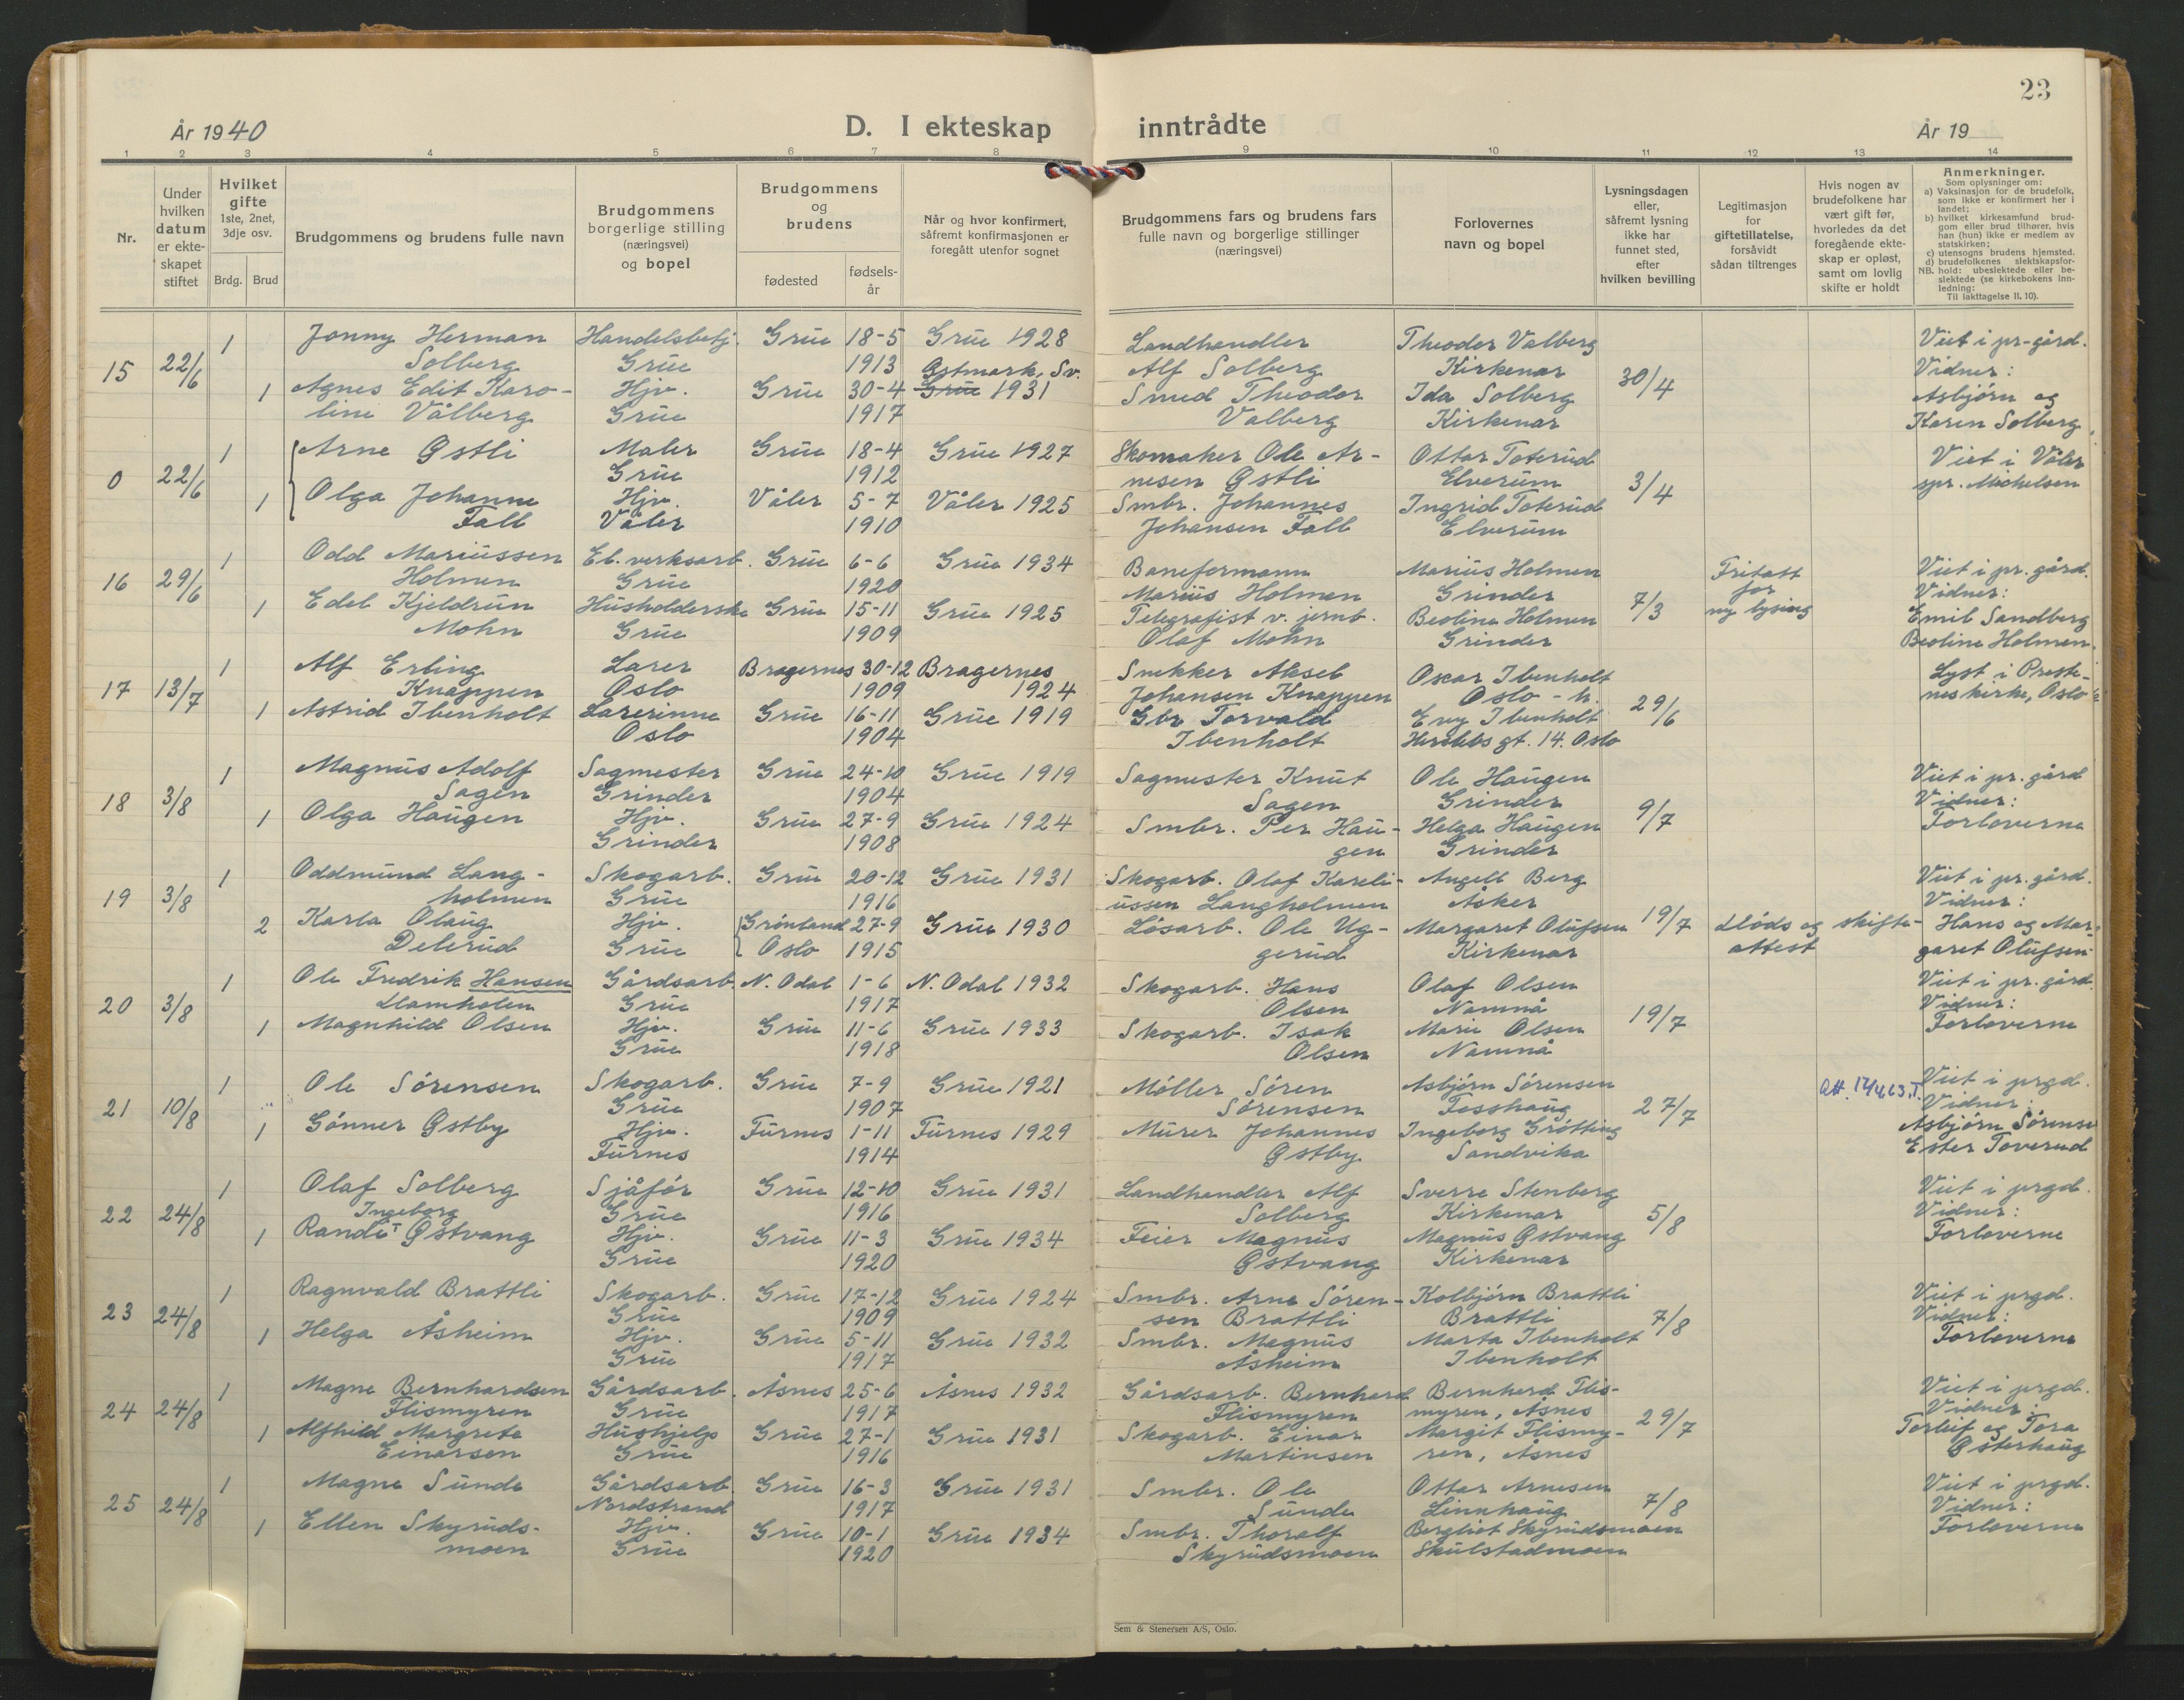 23
År 1940
D. I ekteskap inntrådte
År 19
1 2 3 4 5 6 7 8 9 10 11 12 13 14
Nr.
Under hvilken datum er ekte-skapet stiftet
Hvilket gifte 1ste, 2net, 3dje osv.
Brdg. Brud
Brudgommens og brudens fulle navn
Brudgommens borgerlige stilling (næringsvei) og bopel
Brudgommens og brudens
fødested fødsels-år
Når og hvor konfirmert, såfremt konfirmasjonen er foregått utenfor sognet
Brudgommens fars og brudens fars fulle navn og borgerlige stillinger (næringsvei)
Forlovernes navn og bopel
Lysningsdagen eller, såfremt lysning ikke har funnet sted, efter hvilken bevilling
Legitimasjon for giftetillatelse, forsåvidt sådan tiltrenges
Hvis nogen av brudefolkene har vært gift før, hvorledes da det foregående ekte-skap er opløst, samt om lovlig skifte er holdt
Anmerkninger.
Som oplysninger om:
a) Vaksinasjon for de brudefolk, som ikke er konfirmert her i landet;
b) hvilket kirkesamfund brud-gom eller brud tilhører, hvis han (hun) ikke er medlem av statskirken;
c) utensogns brudens hjemsted.
d) brudefolkenes slektskapsfor-hold: ubeslektede eller be-slektede (se kirkebokens Inn-ledning:
NB.
Til Iakttagelse II. 10).
15 22/6 1 Jonny Herman Handelsbetj. Grue 18-5 Grue 1928 Landhandler Theodor Valberg Viet i pr-gård.
Solberg Grue 1913 Østmark, Sv. Alf Solberg Kirkenær 30/4 Vidner:
1 Agnes Edit Karo- Hjv. Grue 30-4 Grue 1931 Smed Theodor Ida Solberg Asbjørn og
line Vålberg Grue 1917 Valberg Kirkenær Karen Solberg
0 22/6 1 Arne Østli Maler Grue 18-4 Grue 1927 Skomaker Ole Ar- Ottar Toterud Viet i Våler
Grue 1912 nesen Østli Elverum 3/4 spr. Michelsen
1 Olga Johanne Hjv. Våler 5-7 Våler 1925 Smbr. Johannes Ingrid Toterud
Fall Våler 1910 Johansen Fall Elverum
16 29/6 1 Odd Mariussen El. verksarb. Grue 6-6 Grue 1934 Baneformann Marius Holmen Fritatt Viet i pr. gård.
Holmen Grue 1920 Marius Holmen Grinder 7/3 for Vidner:
1 Edel Kjeldrun Husholderske Grue 15-11 Grue 1925 Telegrafist v. jernb. Beoline Holmen ny lysing Emil Sandberg
Mohn Grue 1909 Olaf Mohn Grinder Beoline Holmen.
17 13/7 1 Alf Erling Lærer Bragernes 30-12 Bragernes Snekker Aksel Oscar Ibenholt Lyst i Preste-
Knappen Oslo 1909 1924 Johansen Knappen Oslo - h. 29/6 nes kirke, Oslo
1 Astrid Ibenholt Lærerinne Grue 16-11 Grue 1919 Gbr Torvald Evy Ibenholt
Oslo 1904 Ibenholt Herslebs gt. 14. Oslo
18 3/8 1 Magnus Adolf Sagmester Grue 24-10 Grue 1919 Sagmester Knut Ole Haugen Viet i pr. gård
Sagen Grinder 1904 Sagen Grinder 9/7 Vidner:
1 Olga Haugen Hjv. Grue 27-9 Grue 1924 Smbr. Per Hau- Helga Haugen Forloverne
Grinder 1908 gen Grinder
19 3/8 1 Oddmund Lang- Skogarb. Grue 20-12 Grue 1931 Skogarb. Olaf Kareli- Angell Berg Viet i pr. gård.
holmen Grue 1916 ussen Langholmen Asker 19/7 Vidner:
2 Karla Olaug Hjv. Grønland 27-9 Grue 1930 Løsarb. Ole Ug- Margaret Olufsen Døds og skifte- Hans og Mar-
Delerud Grue Oslo 1915 gerud Kirkenær attest garet Olufsen
20 3/8 1 Ole Fredrik Hansen Gårdsarb. N. Odal 1-6 N. Odal 1932 Skogarb. Hans Olaf Olsen Viet i pr. gård.
Damholen Grue 1917 Olsen Namnå 19/7 Vidner:
1 Magnhild Olsen Hjv. Grue 11-6 Grue 1933 Skogarb. Isak Marie Olsen Forloverne
Grue 1918 Olsen Namnå
21 10/8 1 Ole Sørensen Skogarb. Grue 7-9 Grue 1921 Møller Søren Asbjørn Sørensen Att. 17/4 63. T. Viet i prgd.
Grue 1907 Sørensen Fosshaug 27/7 Vidner:
1 Gunner Østby Hjv. Furnes 1-11 Furnes 1929 Murer Johannes Ingeborg Grøtting Asbjørn Sørensen
Furnes 1914 Østby Sandvika Ester Toverud
22 24/8 1 Olaf Solberg Sjåfør Grue 12-10 Grue 1931 Landhandler Alf Sverre Stenberg Viet i prgd.
Ingeborg Grue 1916 Solberg Kirkenær 5/8 Vidner:
1 Randi Østvang Hjv. Grue 11-3 Grue 1934 Feier Magnus Magnus Østvang Forloverne
Grue 1920 Østvang Kirkenær
23 24/8 1 Ragnvald Brattli Skogarb. Grue 17-12 Grue 1924 Smbr. Arne Søren- Kolbjørn Brattli Viet i prgd.
Grue 1909 sen Brattli Brattli 7/8 Vidner:
1 Helga Åsheim Hjv. Grue 5-11 Grue 1932 Smbr. Magnus Marta Ibenholt Forloverne
Grue 1917 Åsheim Ibenholt
24 24/8 1 Magne Bernhardsen Gårdsarb. Åsnes 25-6 Åsnes 1932 Gårdsarb. Bernhard Bernhard Flis- Viet i prgd.
Flismyren Grue 1917 Flismyren myren, Åsnes 29/7 Vidner:
1 Alfhild Margrete Hushjelp Grue 27-1 Grue 1931 Skogarb. Einar Margit Flismy- Torleif og Tora
Einarsen Grue 1916 Martinsen ren, Åsnes Østerhaug
25 24/8 1 Magne Sunde Gårdsarb. Grue 16-3 Grue 1931 Smbr. Ole Ottar Arnesen Viet i prgd.
Nordstrand 1917 Sunde Linnhaug 7/8 Vidner:
1 Ellen Skyruds- Hjv. Grue 10-1 Grue 1934 Smbr. Thoralf Bergliot Skyrudsmoen Forloverne
moen Grue 1920 Skyrudsmoen Skulstadmoen
Sem & Stenersen A/S, Oslo.